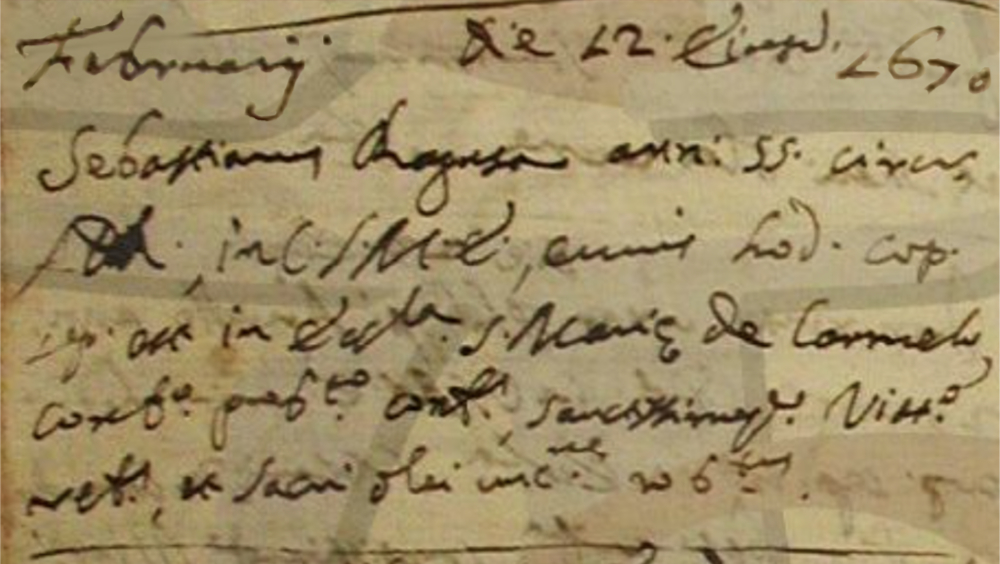 Februarij Die 12. Eiusd. 1670
Sebastianus Ragusa anni: 55. circa,
in C. S. M. E., cuius hod. cor.
sep. est in Eccl.a S. Marię de Carmelo,
conf.o pnt. conf. sanctissimoq. Viat.o
ref. et sacri olei unc.ne rob.tus.